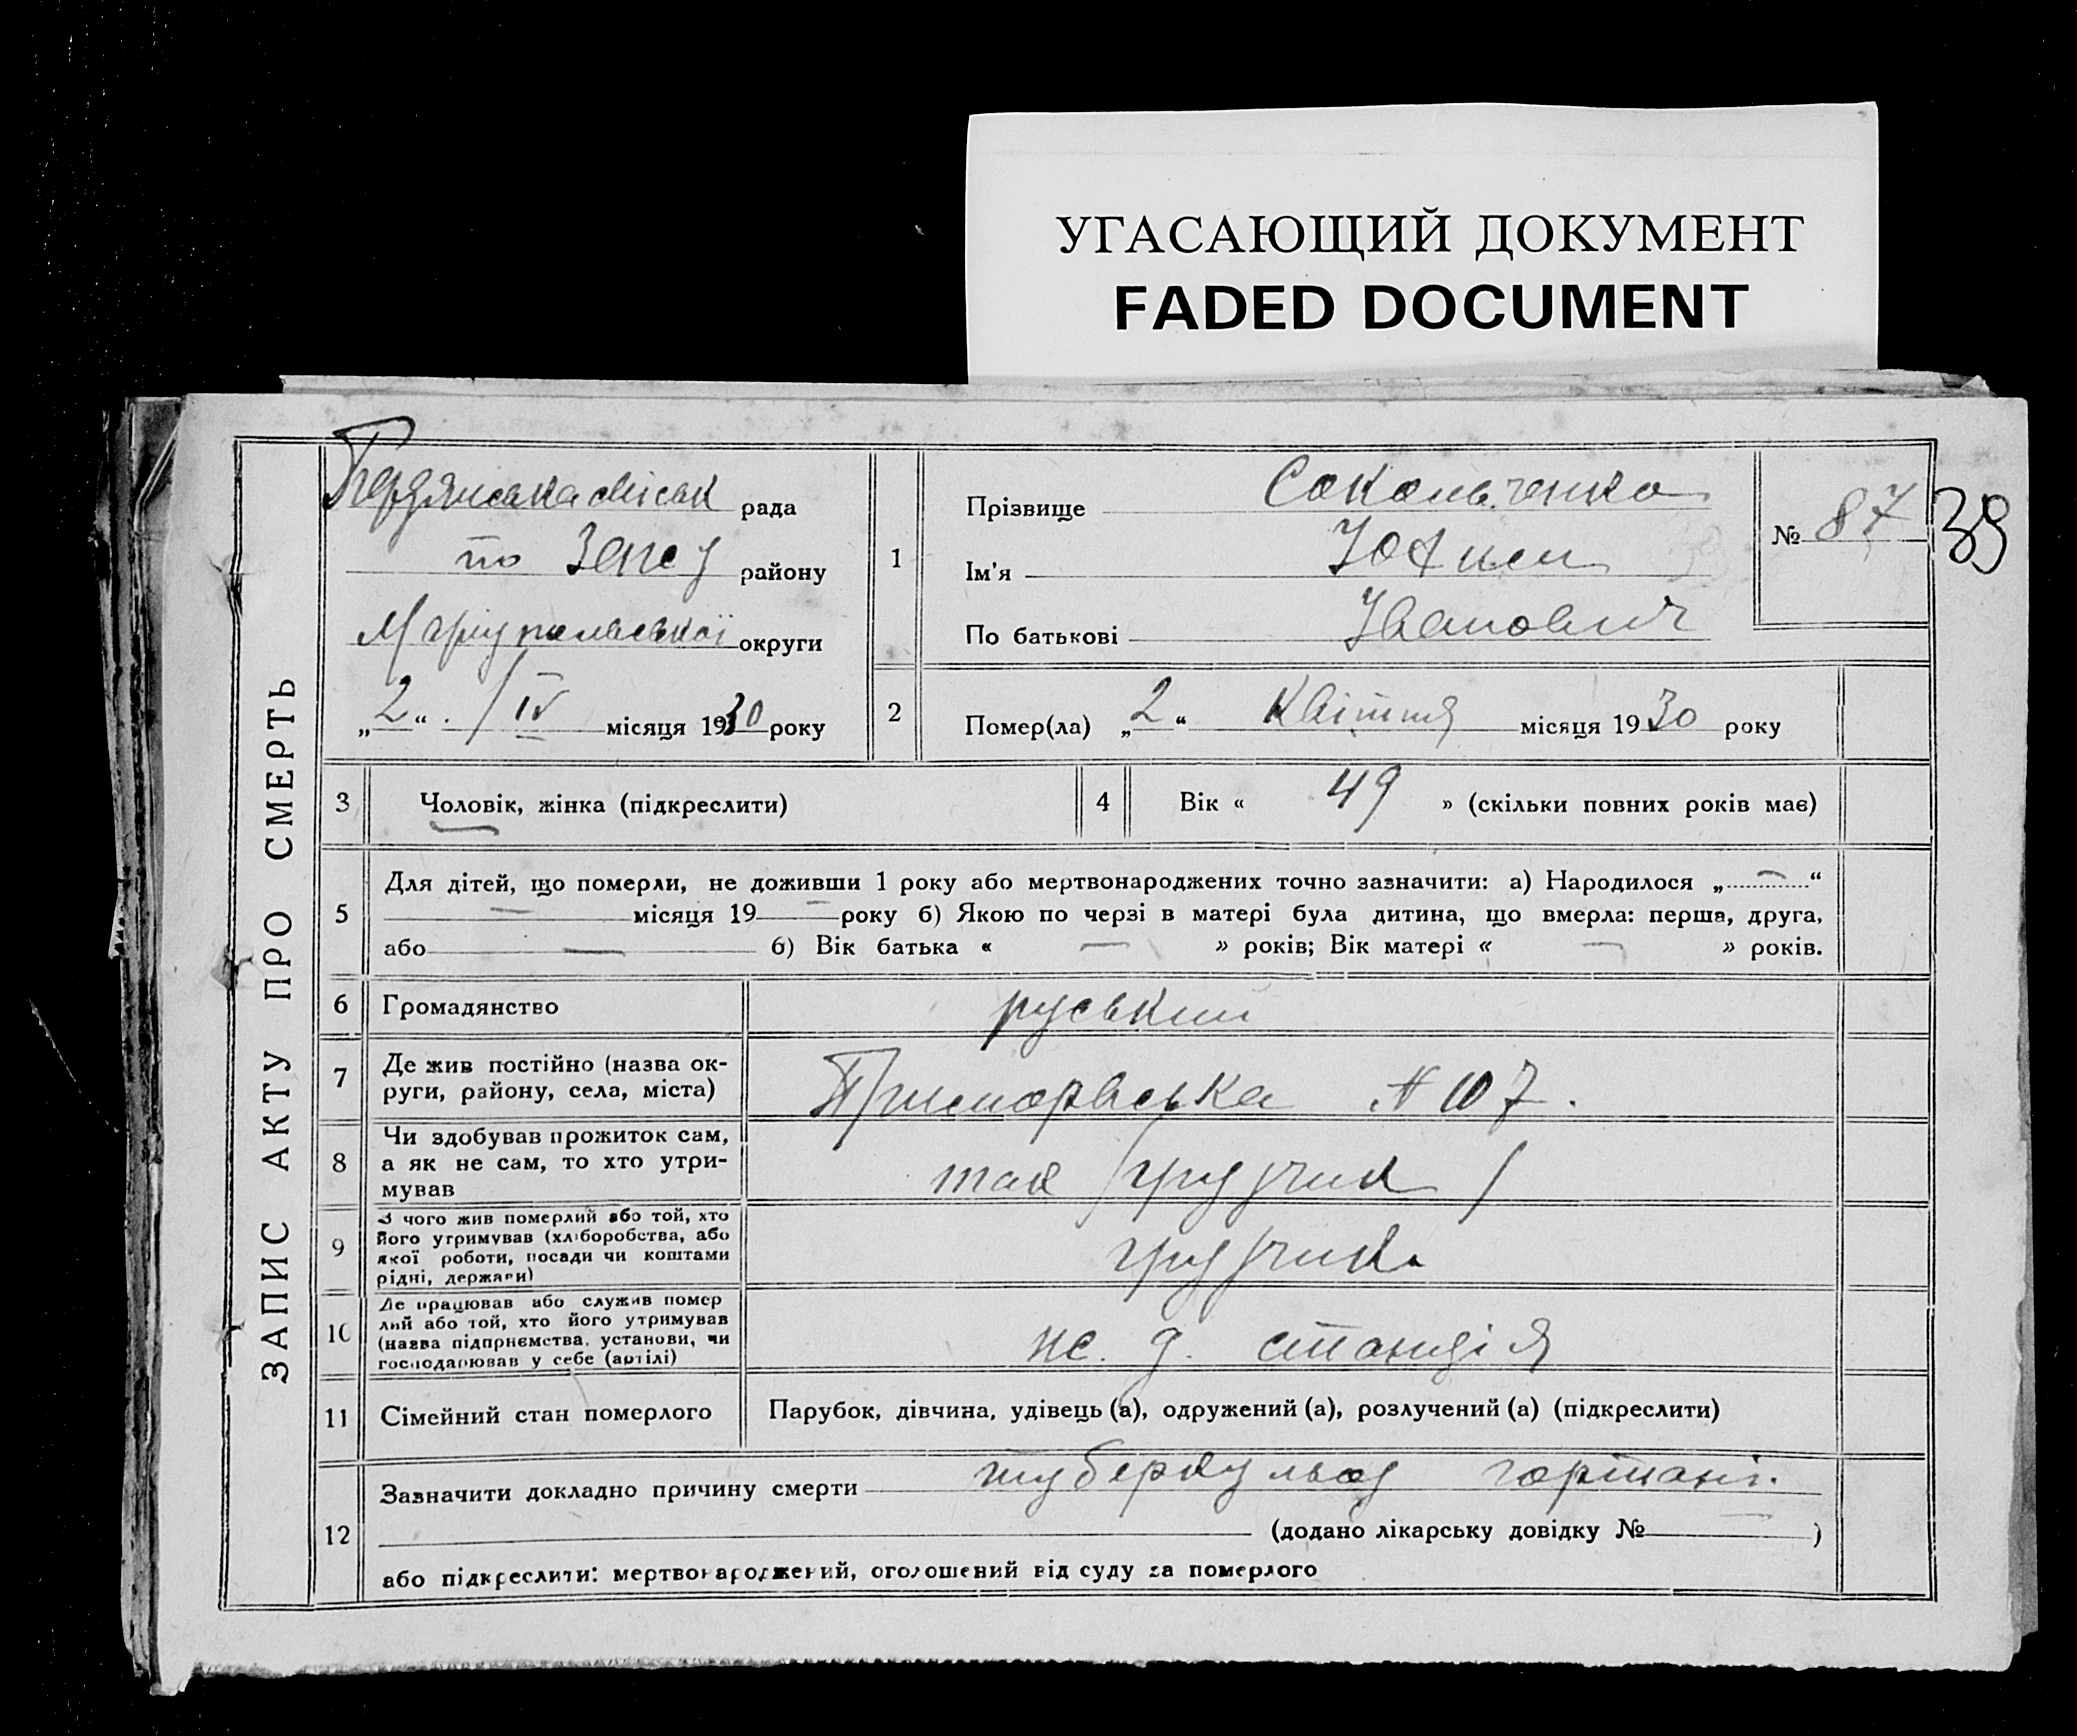 УГАСАЮЩИЙ ДОКУМЕНТ
FADED DOCUMENT
ЗАПИС АКТУ ПРО СМЕРТЬ
Бердянська міськ рада
по Загсу району
Маріупольської округи
„2“ /IV місяця 1930 року
1
Прізвище Сокольченко
Ім'я
По батькові Іванович
№ 87
39
2
Помер(ла) „2“ Квітня місяця 1930 року
3
Чоловік, жінка (підкреслити)
4
Вік « 49 » (скільки повних років має)
5
Для дітей, що померли, не доживши 1 року або мертвонароджених точно зазначити: а) Народилося „—“
— місяця 19— року б) Якою по черзі в матері була дитина, що вмерла: перша, друга,
або — б) Вік батька « — » років; Вік матері « — » років.
6
Громадянство руський
7
Де жив постійно (назва ок-
руги, району, села, міста)
Приморська № 107.
8
Чи здобував прожиток сам,
а як не сам, то хто утри-
мував
так /грузчик/
9
З чого жив померлий або той, хто
його утримував (хліборобства, або
якої роботи, посади чи коштами
рідні, держави)
грузчик
10
Де працював або служив помер
лий або той, хто його утримував
(назва підприємства, установи, чи
господарював у себе (артілі)
станція
11
Сімейний стан померлого
Парубок, дівчина, удівець (а), одружений (а), розлучений (а) (підкреслити)
12
Зазначити докладно причину смерти туберкульоз гортані.
(додано лікарську довідку № — )
або підкреслити: мертвонароджений, оголошений від суду за померлого